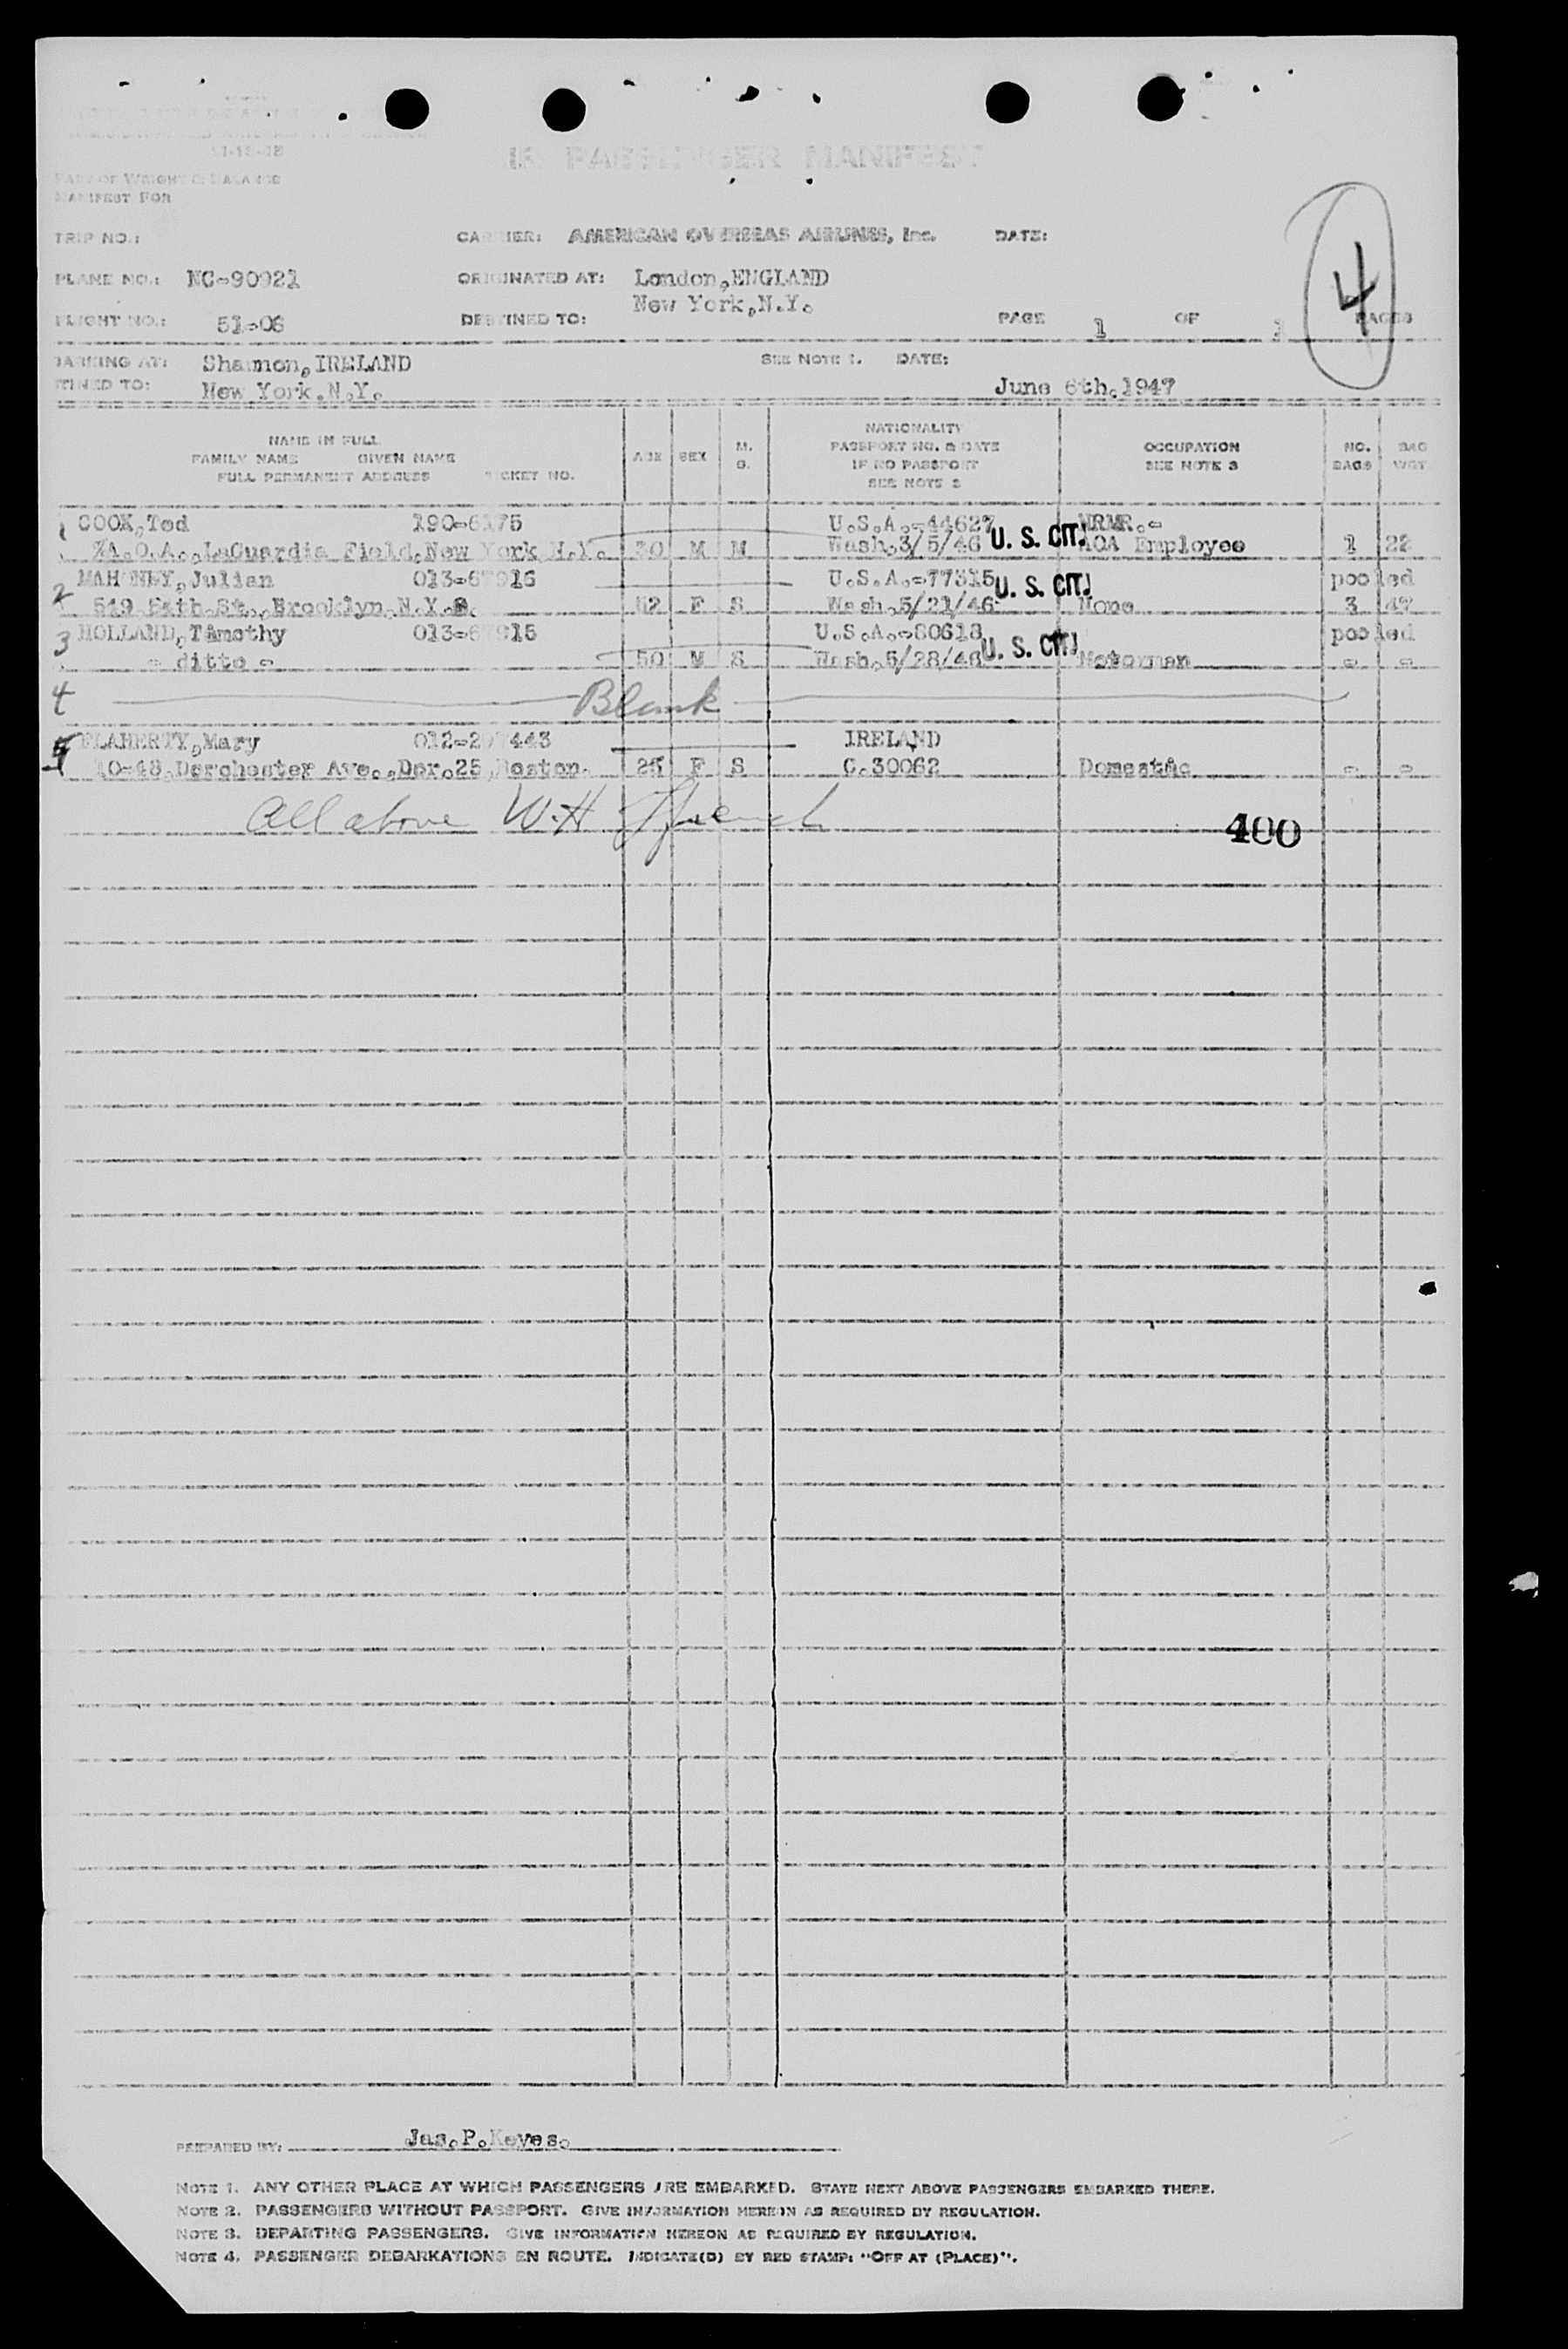 AIR PASSENGER MANIFEST
PART OF WEIGHT & BALANCE
MANIFEST FOR
TRIP NO.: CARRIER: AMERICAN OVERSEAS AIRLINES, Inc. DATE:
PLANE NO.: NC-90921 ORIGINATED AT: London,ENGLAND
New York,N.Y.
FLIGHT NO.: 51-06 DESTINED TO: PAGE 1 OF 1 PAGES
4
BARKING AT: Shannon,IRELAND SEE NOTE 1. DATE:
TINED TO: New York,N.Y. June 6th.1947
NAME IN FULL
FAMILY NAME GIVEN NAME
FULL PERMANENT ADDRESS TICKET NO.
AGE SEX M. S.
NATIONALITY
PASSPORT NO. & DATE
IF NO PASSPORT
SEE NOTE 2
OCCUPATION
SEE NOTE 3
NO. BAGS
BAG WGT.
1 COOK,Ted 190-6175 U.S.A.-44627 NRMR.-
%A.O.A.,LaGuardia Field,New York N.Y. 30 M M Wash.3/5/46 U. S. CIT. AOA Employee 1 22
2 MAHONEY,Julian U.S.A.-77315 U. S. CIT. pooled
Brooklyn,N.Y. 52 F S Wash.5/21/46 None 3 47
3 HOLLAND,Timothy U.S.A.-80618 U. S. CIT. pooled
- ditto - 50 M S Wash.5/28/46 Motorman - -
4 Blank
5 FLAHERTY,Mary IRELAND
10-48,Dorchester Ave.,Dor.25,Boston. 25 F S C.30062 Domestic - -
All above W.H. French
400
PREPARED BY: Jas.P.Keyes.
NOTE 1. ANY OTHER PLACE AT WHICH PASSENGERS ARE EMBARKED. STATE NEXT ABOVE PASSENGERS EMBARKED THERE.
NOTE 2. PASSENGERS WITHOUT PASSPORT. GIVE INFORMATION HEREON AS REQUIRED BY REGULATION.
NOTE 3. DEPARTING PASSENGERS. GIVE INFORMATION HEREON AS REQUIRED BY REGULATION.
NOTE 4. PASSENGER DEBARKATIONS EN ROUTE. INDICATE(D) BY RED STAMP: "OFF AT (PLACE)".